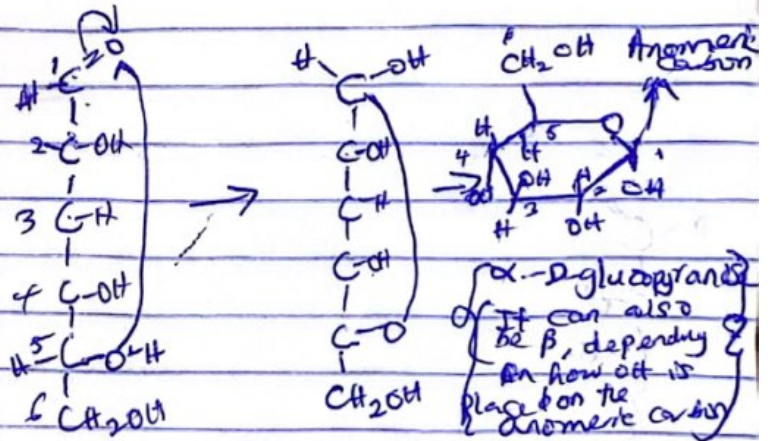 1 O
H C
2 C-OH
3 C-H
4 C-OH
H 5 C-O-H
6 CH2OH
H OH
C
C-OH
C-H
C-OH
C-O
CH2OH
CH2OH Anomeric
carbon
H 5 O
4 H 1
OH OH
H 3 H 2 OH
OH
α-D-glucopyranose
It can also
be β, depending
on how OH is
placed on the
anomeric carbon